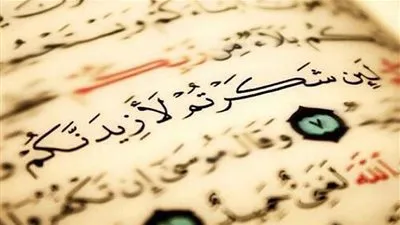 كم بلاء من ربكم
لئن شكرتم لأزيدنكم
٧ وقال موسى إن تكفروا
الله لغني حميد